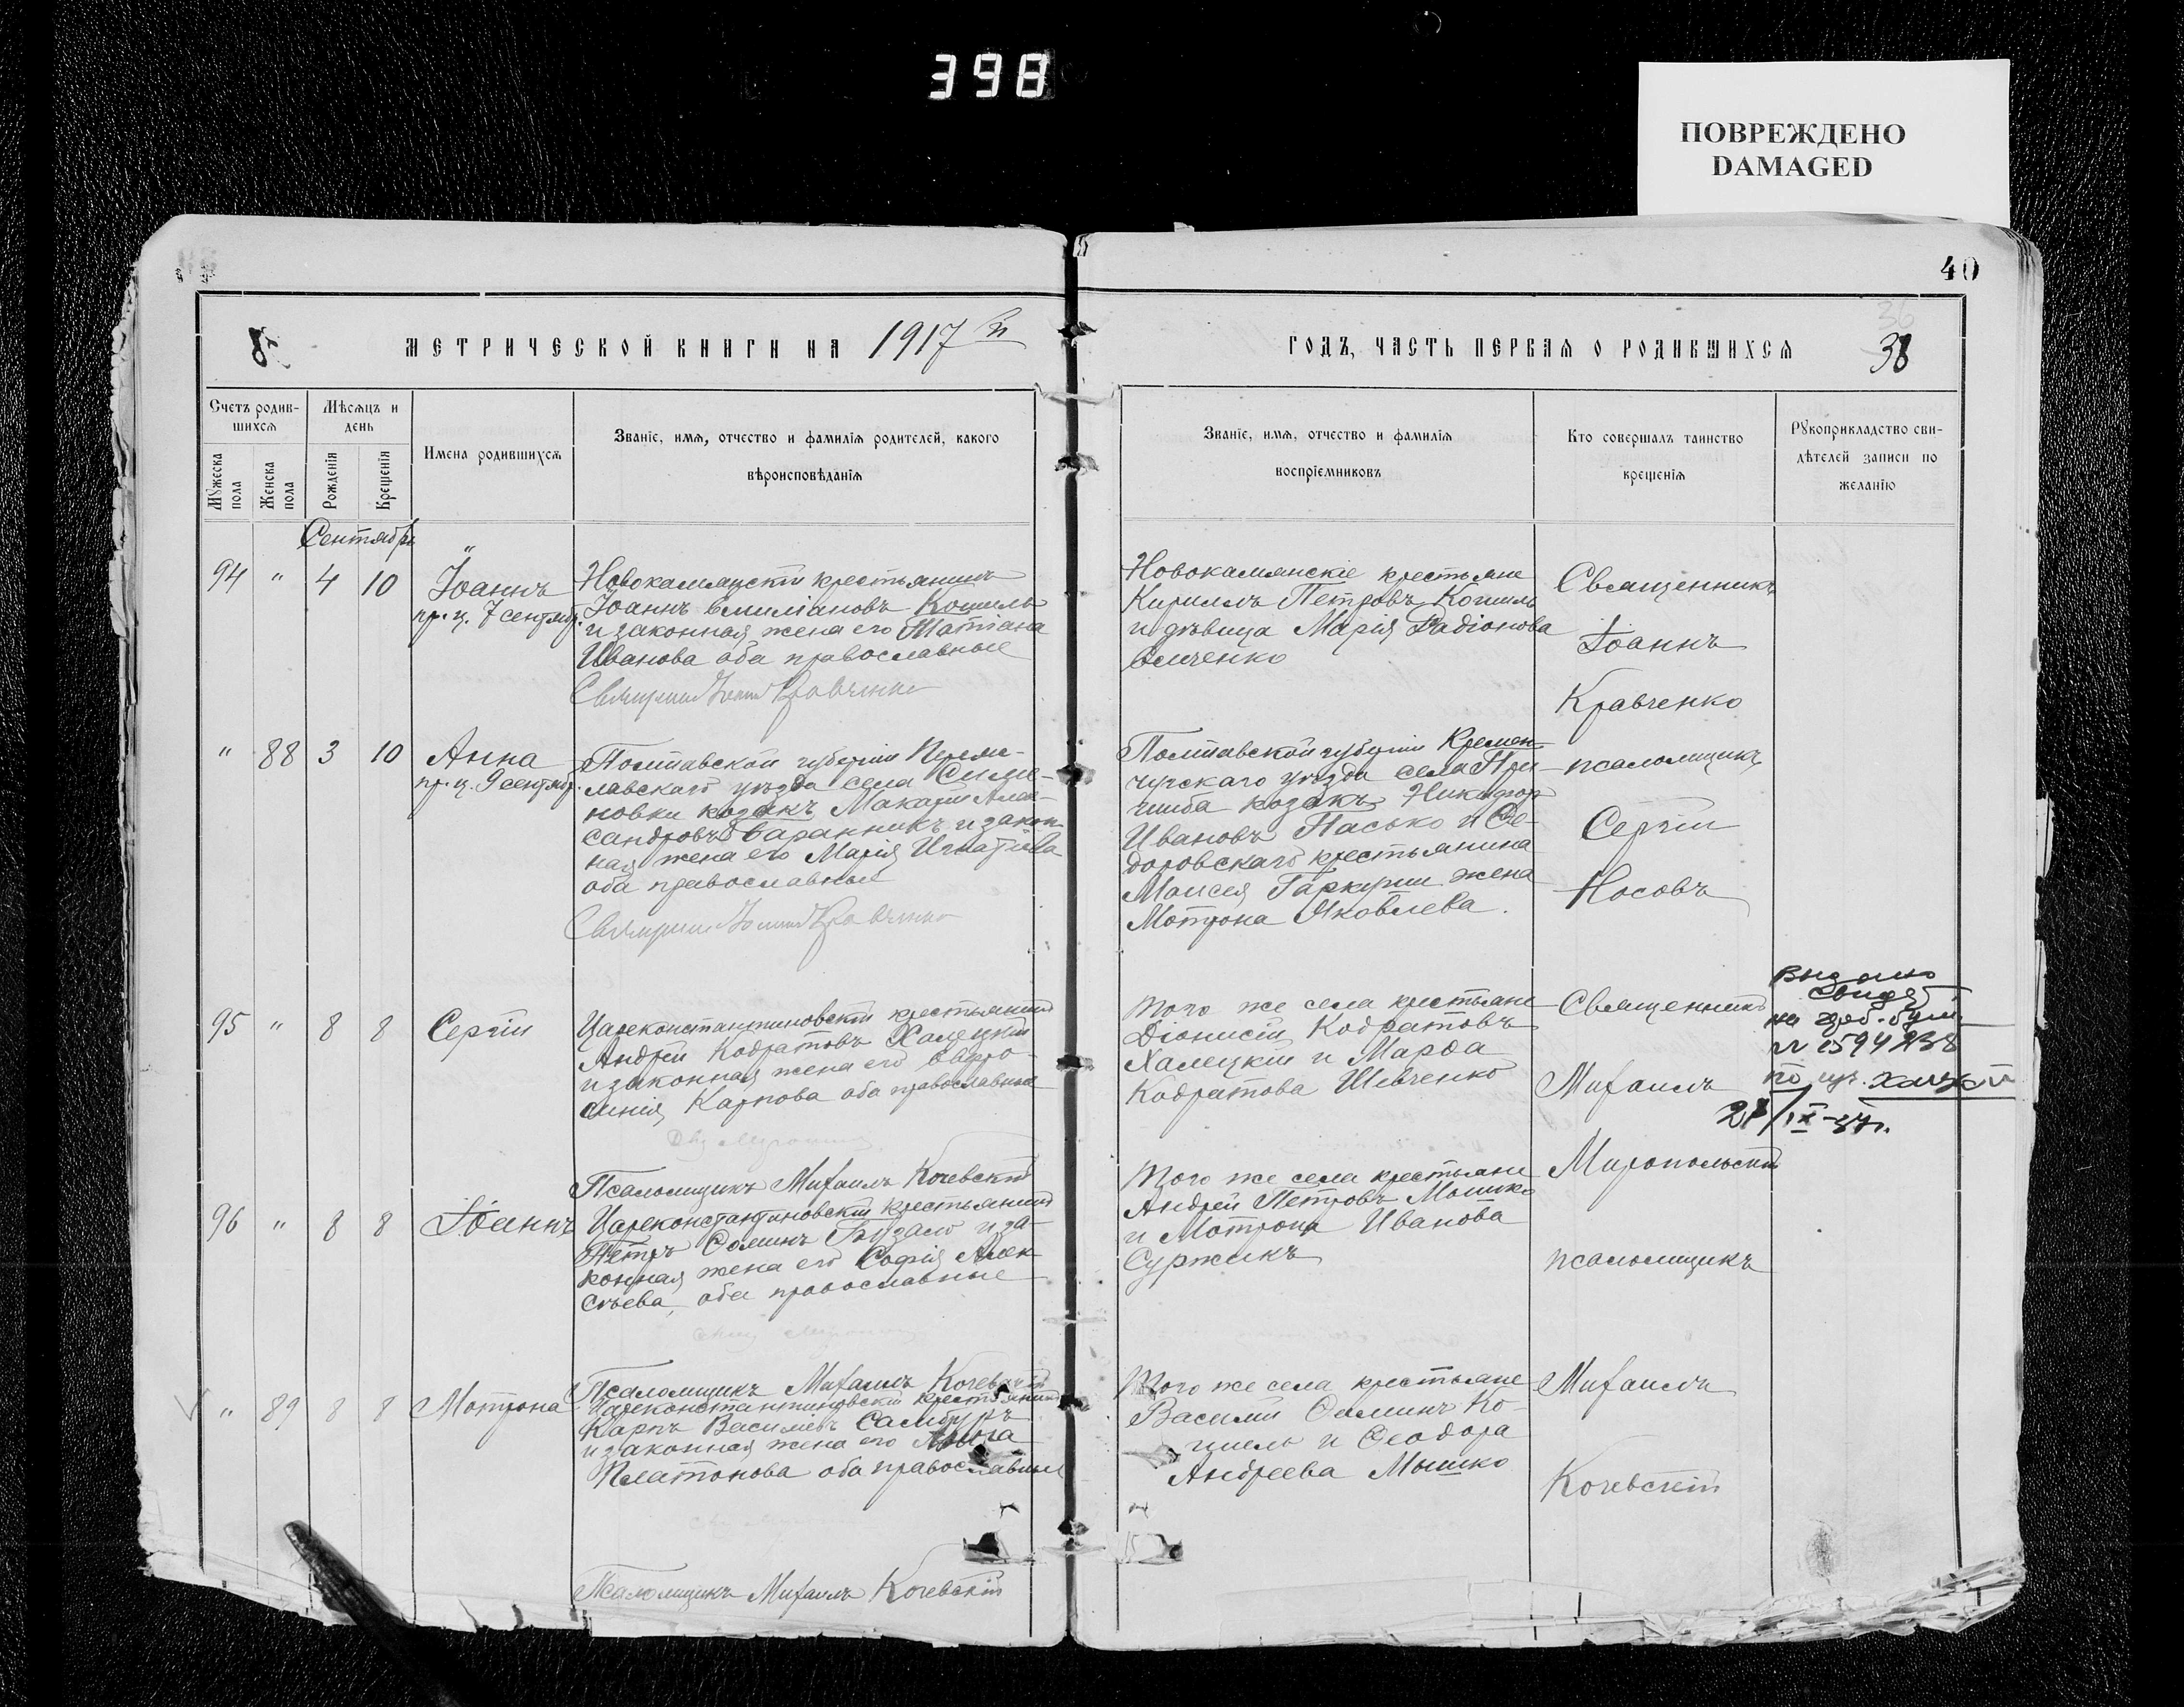 398
ПОВРЕЖДЕНО
DAMAGED
40
36
8
МЕТРИЧЕСКОЙ КНИГИ НА 1917 й
ГОДЪ, ЧАСТЬ ПЕРВАЯ О РОДИВШИХСЯ
38
Счетъ родив-
шихся
Мѣсяцъ и
день
Мужеска
пола
Женска
пола
Рожденія
Крещенія
Имена родившихся
Званіе, имя, отчество и фамилія родителей, какого
вѣроисповѣданія
Званіе, имя, отчество и фамилія
воспріемниковъ
Кто совершалъ таинство
крещенія
Рукоприкладство сви-
дѣтелей записи по
желанію
Сентябрь
94 " 4 10
Іоаннъ
пр. ц. 7 сентяб.
Новокамянскій крестьянинъ
Іоаннъ Емиліановъ Кошиль
и законная жена его Татіана
Иванова оба православные
Священникъ Іоаннъ Кравченко
Новокамянскіе крестьяне
Кириллъ Петровъ Кошиль
и дѣвица Марія Радіонова
Священникъ
Іоаннъ
Кравченко
" 88 3 10
Анна
пр. ц. 9 сентяб.
Полтавской губерніи Переяс-
лавскаго уѣзда села
новки козакъ Макарій Алек-
сандровъ Баранникъ и закон
ная жена его Марія Игнатіева
оба православные
Священникъ Іоаннъ Кравченко
Полтавской губерніи Кремен-
чугскаго уѣзда села При-
шиба козакъ Никифор
Ивановъ Пасько и Ѳе-
доровскаго крестьянина
Моисея Гаркуши жена
Мотрона Яковлева.
псаломщикъ
Сергій
Носовъ
95 " 8 8
Сергій
Цареконстантиновскій крестьянинъ
Андрей Кодратовъ Халецкій
и законная жена его Евфро-
синія Карпова оба православные
Псаломщикъ Михаилъ Кочевскій
Того же села крестьяне
Діонисій Кодратовъ
Халецкій и Марѳа
Кодратова Шевченко
Священникъ
Михаилъ
Миропольскій
Выдано
свидет.
на
№ 1594238
28/IX-37г.
96 " 8 8
Іоаннъ
Цареконстантиновскій крестьянинъ
Петръ Ѳоминъ Бузало и за-
конная жена его Софія Алек
сѣева, оба православные
Псаломщикъ Михаилъ Кочевскій
Того же села крестьяне
Андрей Петровъ Мышко
и Мотрона Иванова
Суржикъ
псаломщикъ
" 89 8 8
Мотрона
Цареконстантиновскій крестьянинъ
Карпъ Васильевъ Самбуръ
и законная жена его
Платонова оба православные
Псаломщикъ Михаилъ Кочевскій
Того же села крестьяне
Василій Ѳоминъ Ко-
шель и Ѳеодора
Андреева Мышко
Михаилъ
Кочевскій